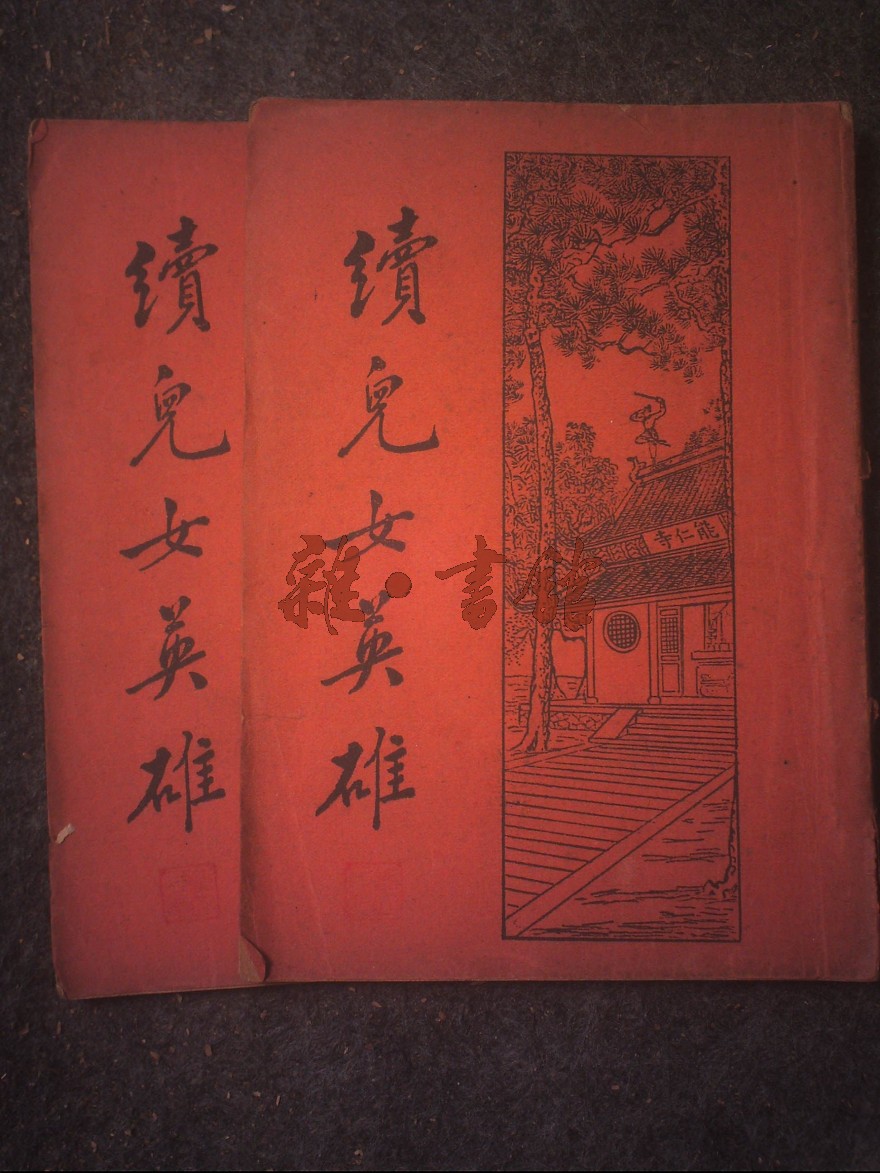 續兒女英雄
續兒女英雄
能仁寺
雜·書館